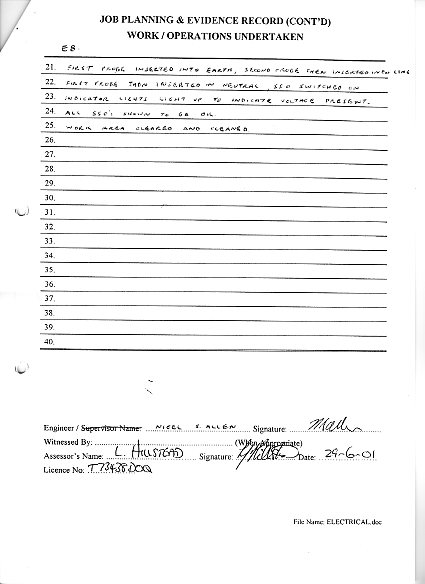 JOB PLANNING & EVIDENCE RECORD (CONT'D)
WORK / OPERATIONS UNDERTAKEN
EB.
21. FIRST PROBE INSERTED INTO EARTH, SECOND PROBE THEN INSERTED INTO LINE
22. FIRST PROBE THEN INSERTED IN NEUTRAL, SSO SWITCHED ON
23. INDICATOR LIGHTS LIGHT UP TO INDICATE VOLTAGE PRESENT.
24. ALL SSO'S SHOWN TO BE OK.
25. WORK AREA CLEARED AND CLEANED
26.
27.
28.
29.
30.
31.
32.
33.
34.
35.
36.
37.
38.
39.
40.
Engineer / Supervisor Name: NIGEL S. ALLEN Signature:
Witnessed By: (When Appropriate)
Assessor's Name: L. Signature: Date: 29-6-01
Licence No: T73438DOQ
File Name: ELECTRICAL.doc